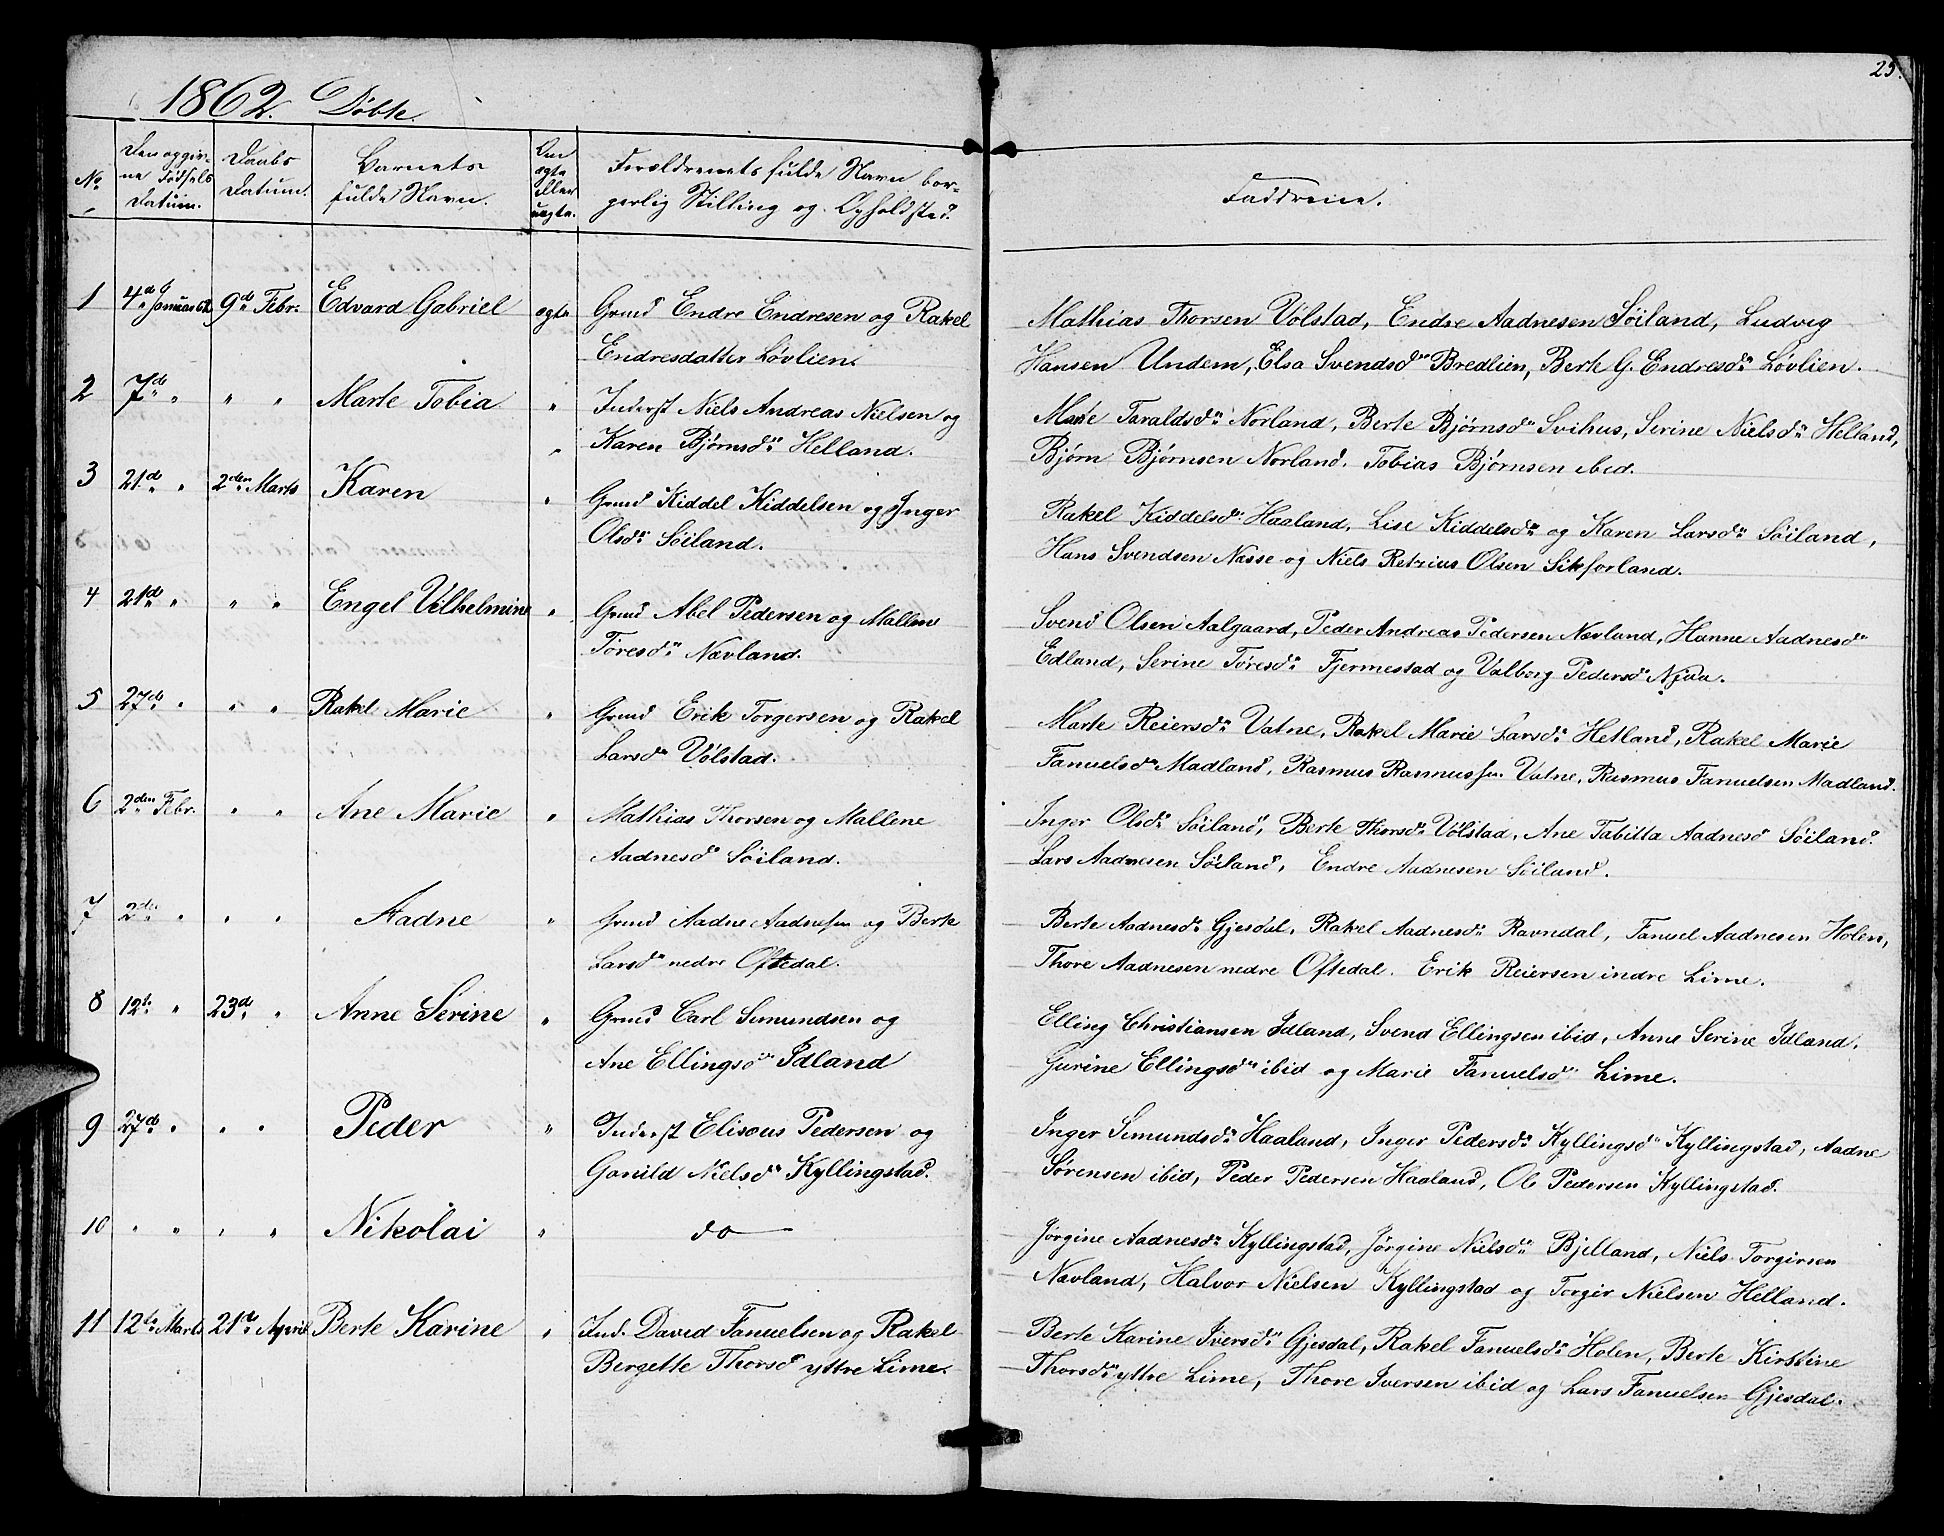 25.
1862. Döbte.
No
Den opgiv-
ne Fødsels
Datum.
Daabs
Datum.
Barnets
fulde Navn.
Om
ægte
eller
uægte.
Forældrenes fulde Navn bor-
gerlig Stilling og Opholdsted.
Faddrene.
1 4d Januar 62 9d Febr. Edvard Gabriel ægte Grmd Endre Endresen og Rakel
Endresdatter Løvlien.
Mathias Thorsen Vølstad, Endre Aadnesen Søiland, Ludvig
Hansen Undem, Elsa Svendsdr Bredlien, Berte G. Endresdr Løvlien.
2 7de " " " Marte Tobia " Inderst Niels Andreas Nielsen og
" Karen Bjørnsdr Helland.
Marie Taraldsdr Norland, Berte Bjørnsdr Svihus, Serine Nielsdr Helland,
Bjørn Bjørnsen Norland. Tobias Bjørnsen ibid.
3 21d " 2den Marts Karen " Grmd Kiddel Kiddelsen og Inger
Olsdr Søiland.
Rakel Kiddelsdr Haaland, Lise Kiddelsdr og Karen Larsdr Søiland,
Hans Svendsen Næsse og Niels Retrius Olsen Sikforland.
4 21d " " " Engel Vilhelmine " Grmd Abel Pedersen og Mallene
Toresdr Nævland.
Svend Olsen Aalgaard, Peder Andreas Pedersen Nævland, Hanne Aadnesdr
Edland, Serine Tøresdr Fjermestad og Valborg Pedersdr Njaa.
5 27de " " " Rakel Marie " Grmd Erik Torgersen og Rakel
Larsdr Vølstad.
Marte Reiersdr Vatne, Rakel Marie Larsdr Hetland, Rakel Marie
Fanuelsdr Madland, Rasmus Rasmussen Vatne, Rasmus Fanuelsen Madland.
6 2den Febr. " " Ane Marie " Mathias Thorsen og Mallene
Aadnesdr Søiland.
Inger Olsdr Søiland, Berte Thorsdr Vølstad, Ane Tabitta Aadnesd Søiland.
Lars Aadnesen Søiland, Endre Aadnesen Søiland.
7 2den " " " Aadne " Grmd Aadne Aadnessen og Berte
Larsdr nedre Oftedal.
Berte Aadnesdr Gjesdal, Rakel Aadnesdr Ravndal, Fanuel Aadnesen Holen,
Thore Aadnesen nedre Oftedal. Erik Reiersen indre Lime.
8 12te " 23de " Anne Serine " Grmd Carl Simundsen og
Ane Ellingsdr Idland
Elling Christiansen Idland, Svend Ellingsen ibid, Anne Serine Idland.
Gurine Ellingsdr ibid og Marie Fanuelsdr Lime.
9 27de " " " Peder " Inderst Elisæus Pedersen og
Gonild Nielsdr Kyllingstad.
Inger Simundsdr Haaland, Inger Pedersdr Kyllingsdr Kyllingstad, Aadne
Sørensen ibid, Peder Pedersen Haaland, Ole Pedersen Kyllingstad.
10 " " " " Nikolai " do
Jørgine Aadnesdr Kyllingstad, Jørgine Nielsdr Bjelland, Niels Torgirsen
Nævland, Halvor Nielsen Kyllingstad og Torgir Nielsen Helland.
11 12te Marts 21de April Berte Karine " Ind. David Fanuelsen og Rakel
Bergette Thorsd yttre Lime.
Berte Karine Iversdr Gjesdal, Rakel Fanuelsdr Holen, Berte Kirstine
Thorsdr yttre Lime, Thore Iversen ibid og Lars Fanuelsen Gjesdal.